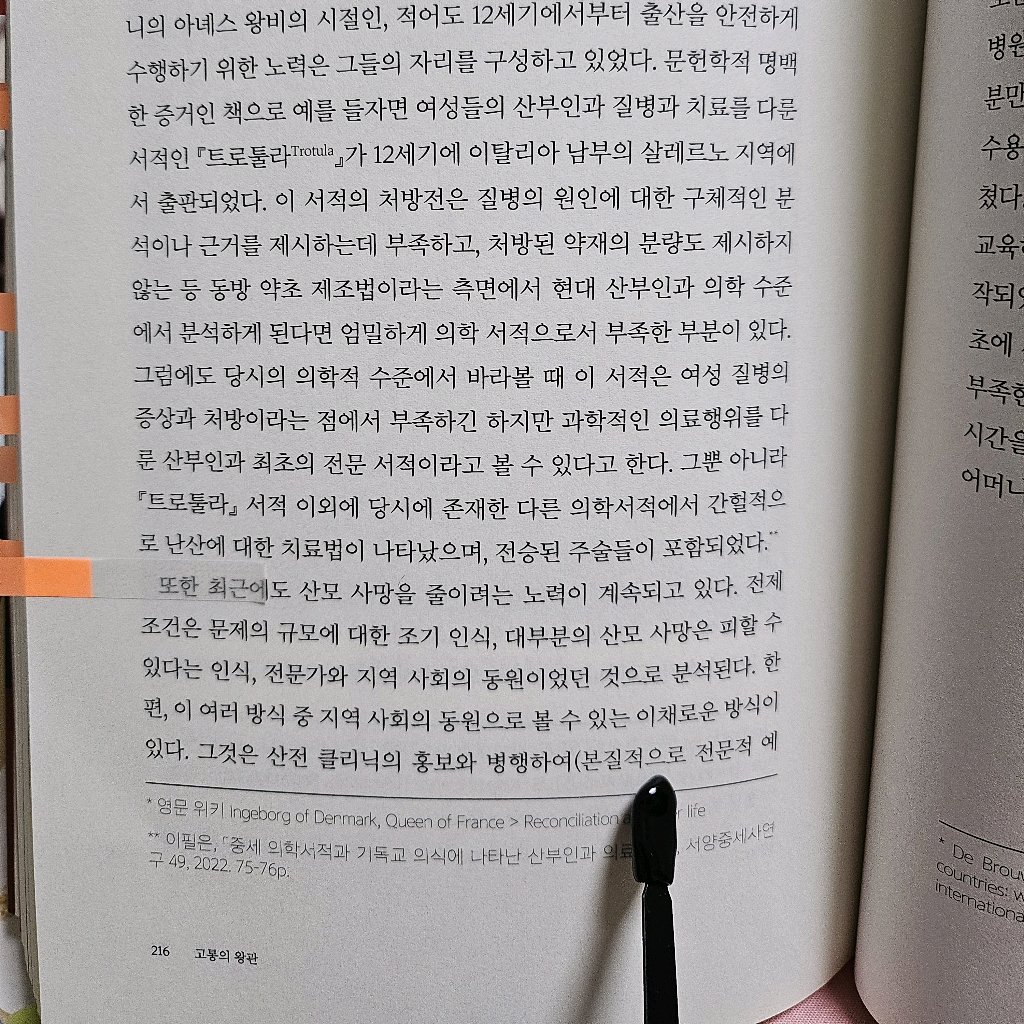 니의 아녜스 왕비의 시절인, 적어도 12세기에서부터 출산을 안전하게
수행하기 위한 노력은 그들의 자리를 구성하고 있었다. 문헌학적 명백
한 증거인 책으로 예를 들자면 여성들의 산부인과 질병과 치료를 다룬
서적인 『트로툴라Trotula』가 12세기에 이탈리아 남부의 살레르노 지역에
서 출판되었다. 이 서적의 처방전은 질병의 원인에 대한 구체적인 분
석이나 근거를 제시하는데 부족하고, 처방된 약재의 분량도 제시하지
않는 등 동방 약초 제조법이라는 측면에서 현대 산부인과 의학 수준
에서 분석하게 된다면 엄밀하게 의학 서적으로서 부족한 부분이 있다.
그럼에도 당시의 의학적 수준에서 바라볼 때 이 서적은 여성 질병의
증상과 처방이라는 점에서 부족하긴 하지만 과학적인 의료행위를 다
룬 산부인과 최초의 전문 서적이라고 볼 수 있다고 한다. 그뿐 아니라
『트로툴라』 서적 이외에 당시에 존재한 다른 의학서적에서 간헐적으
로 난산에 대한 치료법이 나타났으며, 전승된 주술들이 포함되었다.**
또한 최근에도 산모 사망을 줄이려는 노력이 계속되고 있다. 전제
조건은 문제의 규모에 대한 조기 인식, 대부분의 산모 사망은 피할 수
있다는 인식, 전문가와 지역 사회의 동원이었던 것으로 분석된다. 한
편, 이 여러 방식 중 지역 사회의 동원으로 볼 수 있는 이채로운 방식이
있다. 그것은 산전 클리닉의 홍보와 병행하여(본질적으로 전문적 예
* 영문 위키 Ingeborg of Denmark, Queen of France > Reconciliation life
** 이필은, 「중세 의학서적과 기독교 의식에 나타난 산부인과 서양중세사연
구 49, 2022. 75-76p.
216 고봉의 왕관
병원
분만
수용
쳤다
교육
작되
초에
부족한
시간을
어머니
* De Brouw
countries: w
internationa